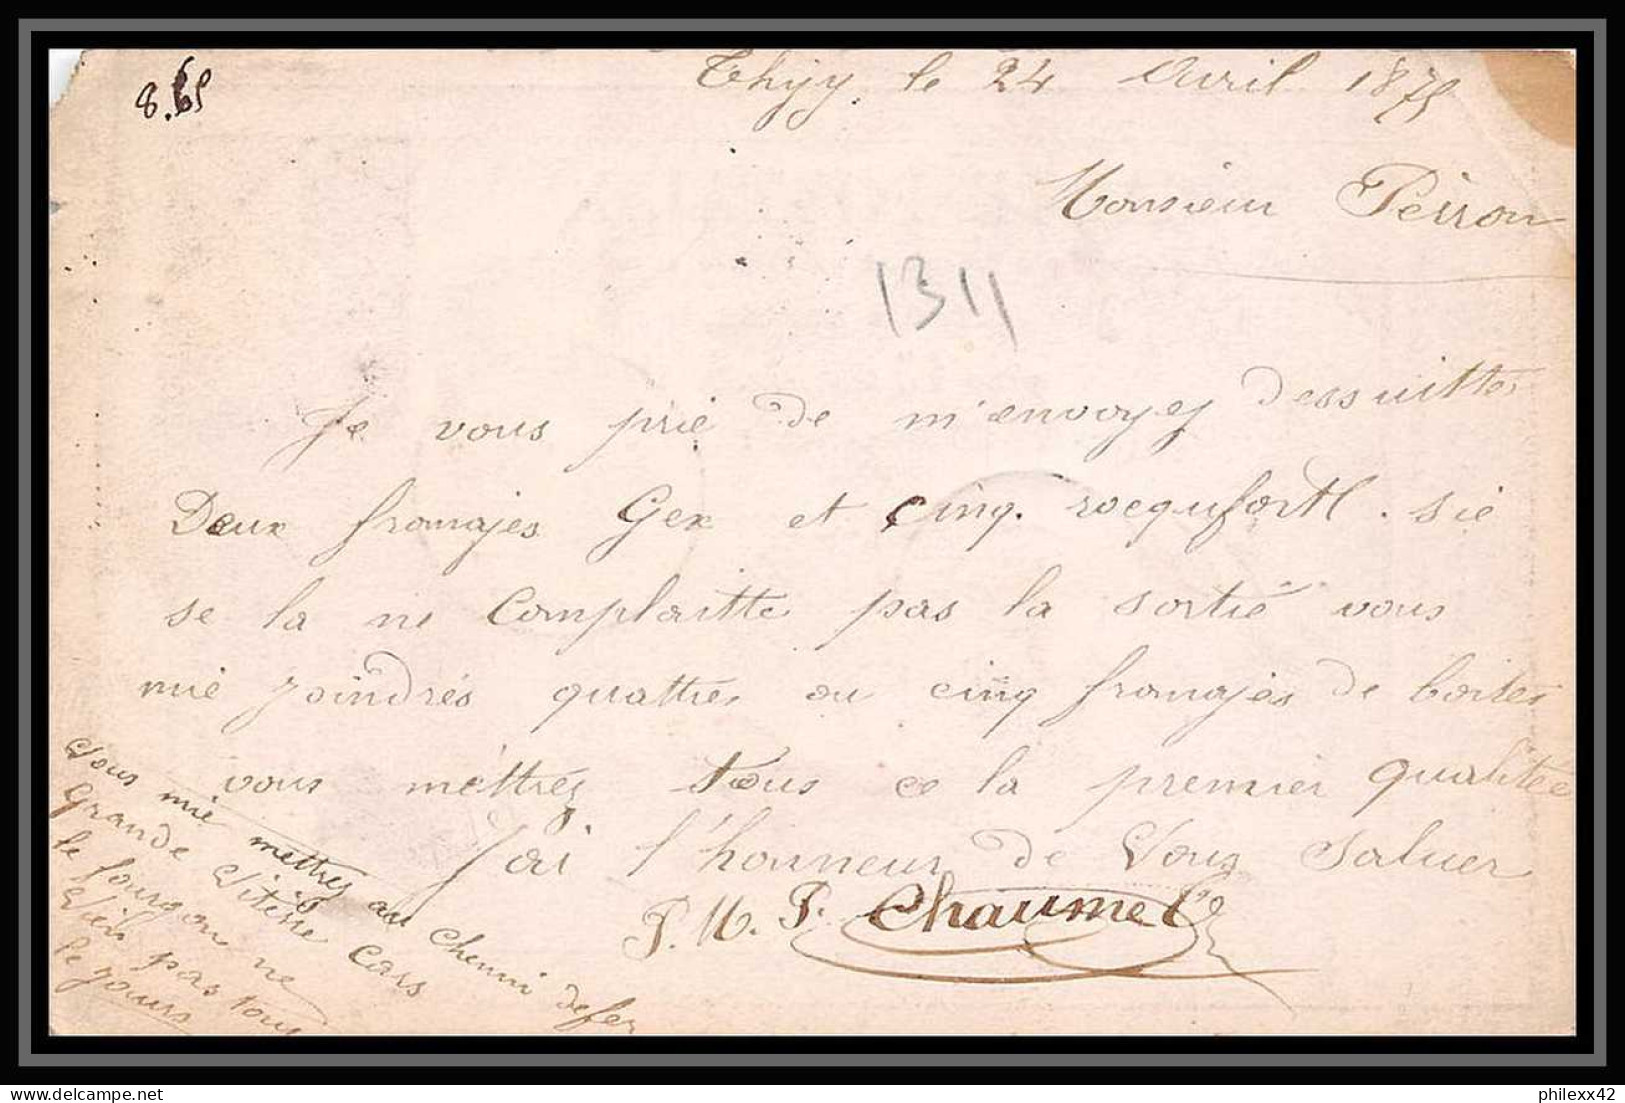 8.65
Thizy le 24 Avril 1875
Monsieur Peirron
1311
Je vous prie de m'envoyez dessuittes
Deux fromajes Gex et cinq. rocquefortt. sie
se la ne Complaitte pas la sortié vous
mie joindrés quattres ou cinq fromajes de boites
vous mettrés tous ce la premier qualitée
J'ai l'honneur de Vous Saluer
P. M. P. Chaumet
Vous mie mettres au chemi defer
Grande Vitesse Cars
le fourgon ne
vien pas tous
le jours
philexx42